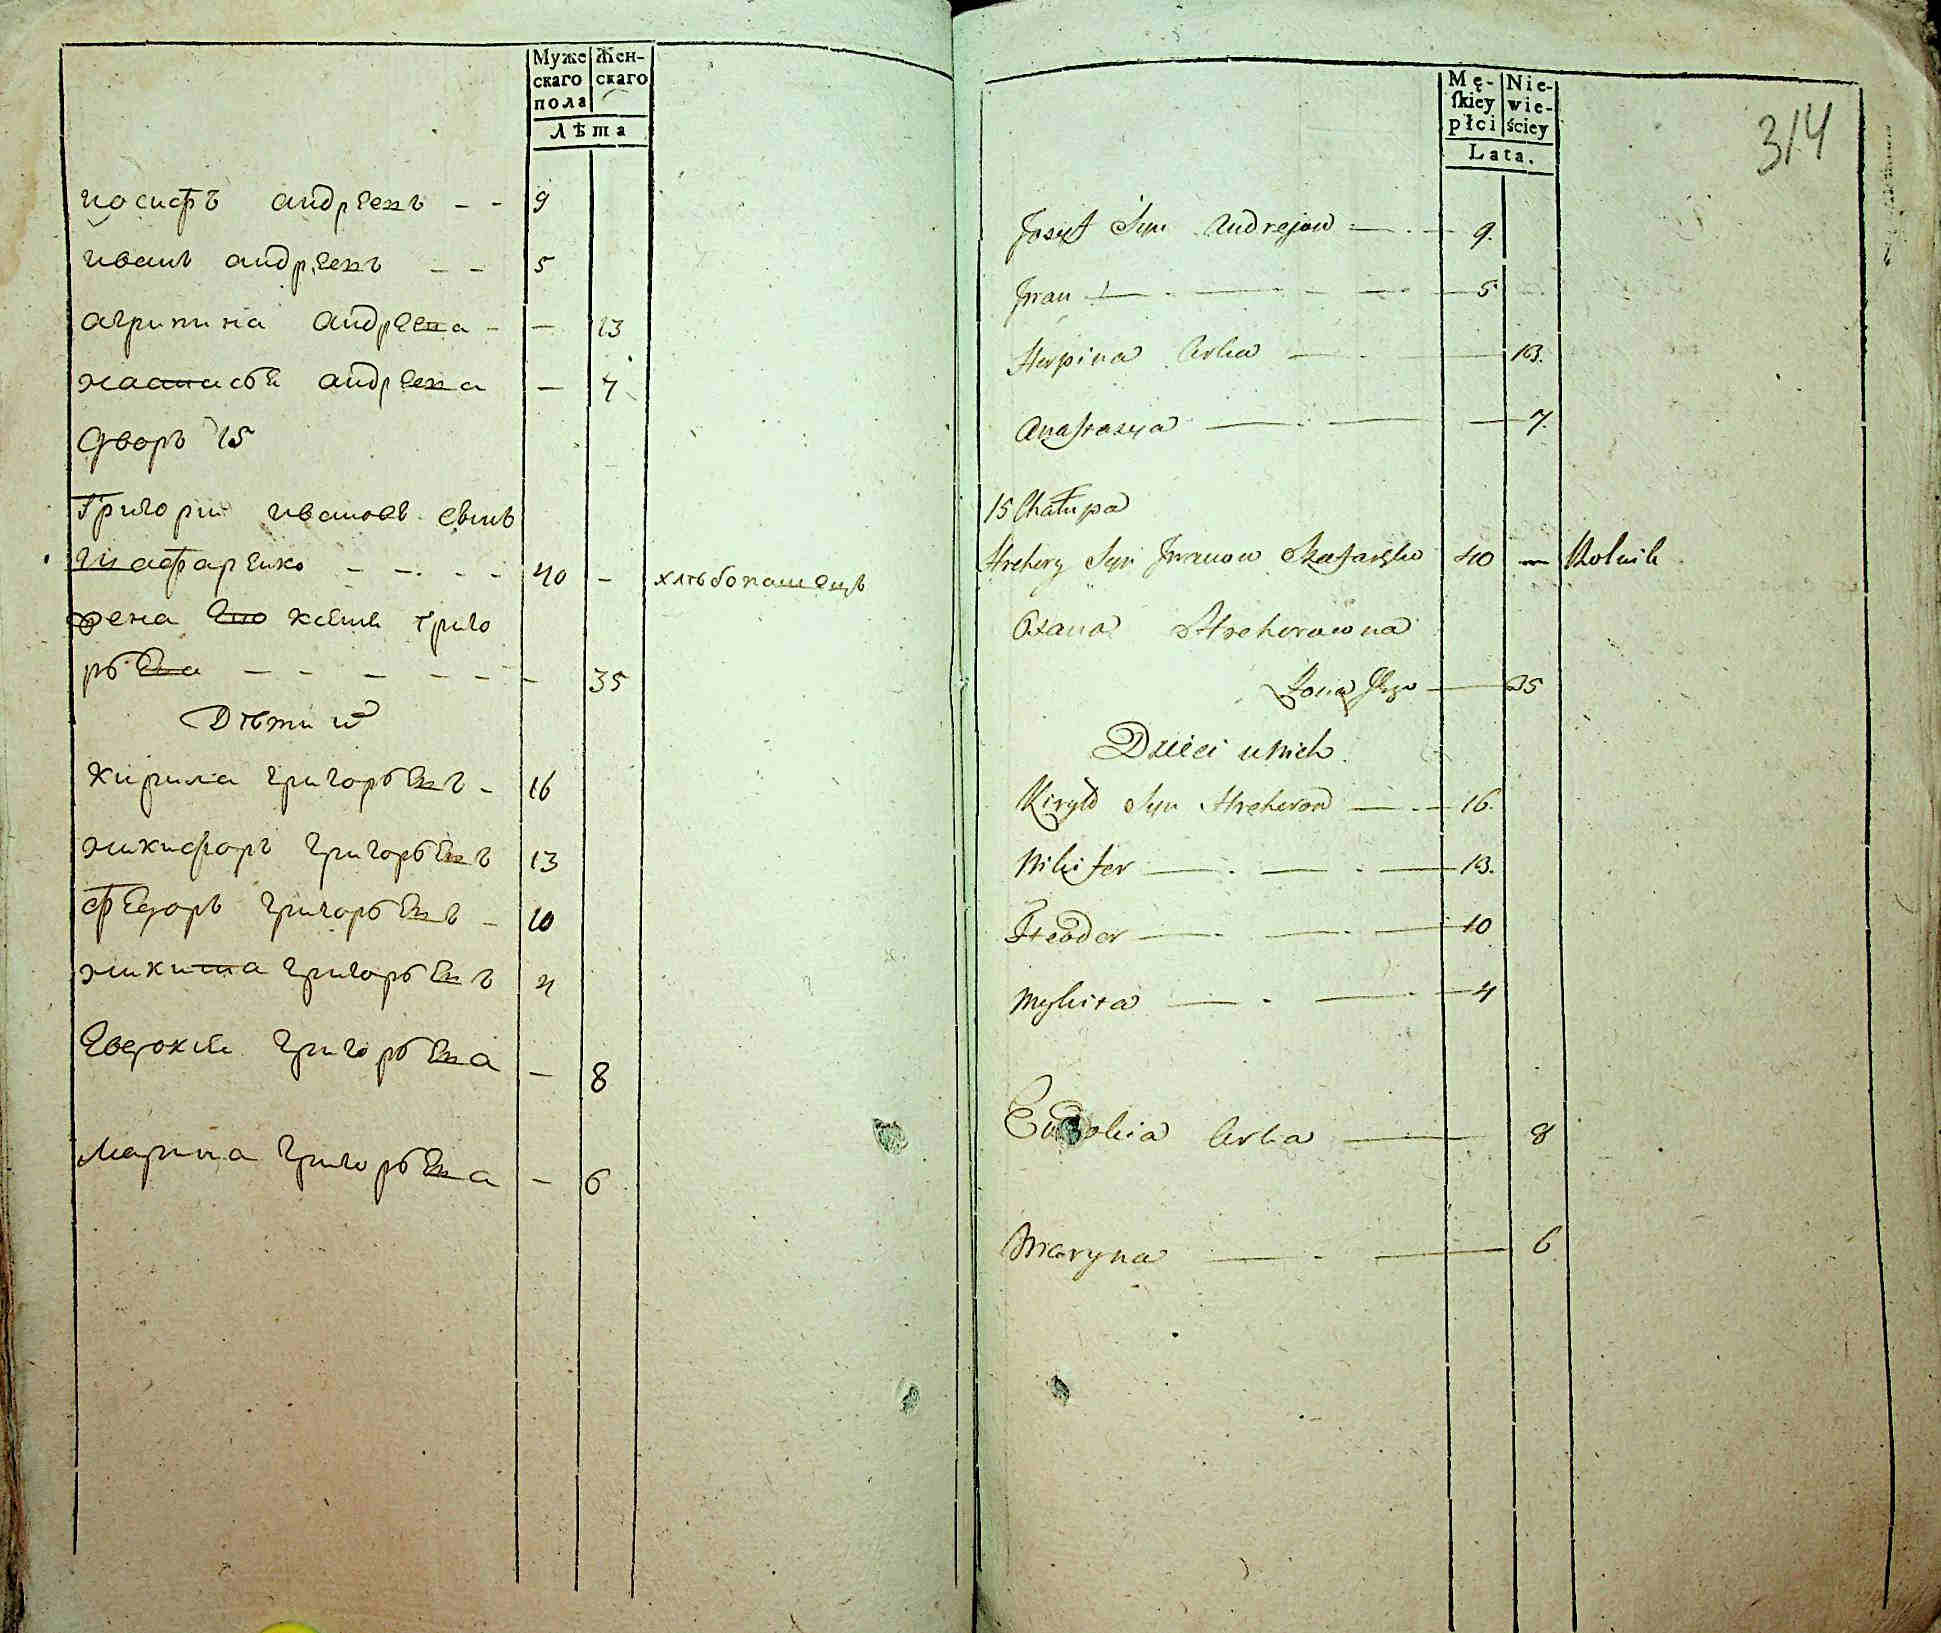 Муже
скаго
пола
Жен-
скаго
Лѣта
иосифъ андреевъ - - 9
иванъ андреевъ - - 5
агрипина андреева - - 13
настасья андреева - 7
Дворъ 15
Григории ивановъ сынъ
шафаренко - - - - 40 - хлѣбопашецъ
его жена григо
рьева - - - - - - 35
Дѣти их
кирила григорьевъ - 16
никифоръ григорьевъ 13
федоръ григорьевъ - 10
никита григорьевъ 4
Евдокия григорьева - 8
марина григорьева - 6
Mę-
skiey
płci
Nie-
wie-
ściey
Lata.
314
Josyf Syn Andrejow — . — 9.
Jwan — . — 5
Horpina Corka — 13.
Anastazya — . — 7.
15 Chałupa
Hrehory Syn Jwanow Szafarenko 40 — Rolnik
Hrehorowna
Zona Jego — 35
Dzieci u Nich.
Kiryło Syn Hrehorow — . — 16.
Nikifer — . — . — 13.
Fteodor — . — . — 10
Mykita — . — . — 4
Eudokia Corka — 8
Maryna — . — 6